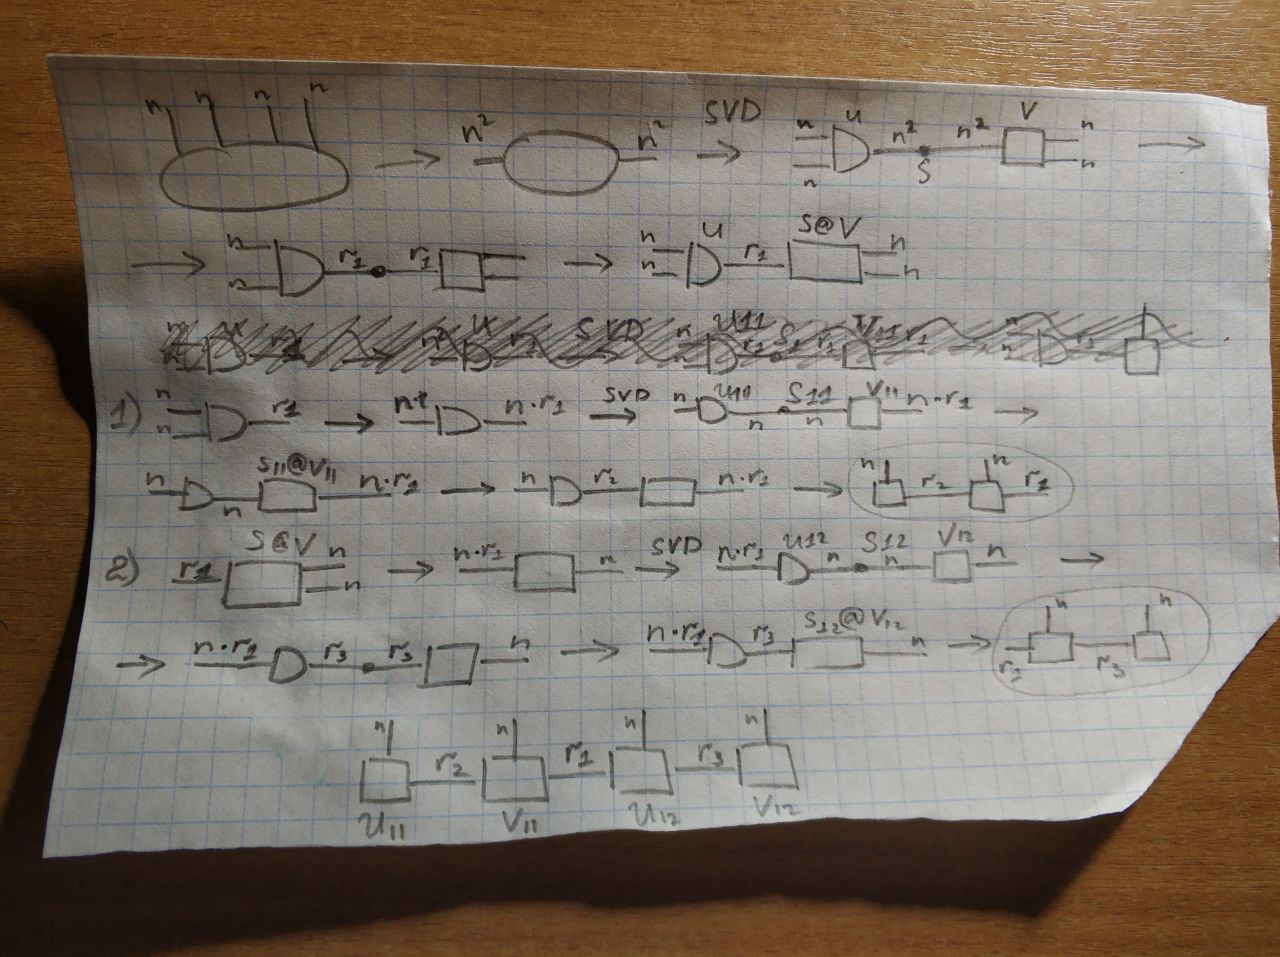 n n n n → n² n² SVD → n n U n² S n² V n n →
→ n n r₁ r₁ → n n U r₁ S@V n n
1) n n r1 → n·1 n·r₁ SVD → n U11 n S11 n V11 n·r₁ →
n n S₁₁@V₁₁ n·r₁ → n r₂ n·r₁ → n r₂ n r₁
2) r1 S@V n n → n·r₁ n SVD → n·r₁ U12 n S12 n V12 n →
→ n·r₁ r₃ r₃ n → n·r₁ r₃ S₁₂@V₁₂ n → r₁ n r₃ n
n r₂ n r₁ n r₃ n
U₁₁ V₁₁ U₁₂ V₁₂